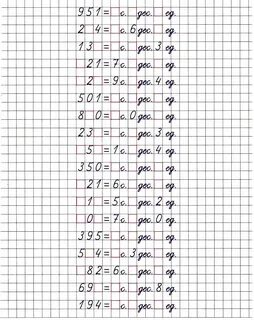 951 = □ с. □ дес. □ ед.
2□4 = □ с. 6 дес. □ ед.
13□ = □ с. □ дес. 3 ед.
□21 = 7 с. □ дес. □ ед.
□2□ = 9 с. □ дес. 4 ед.
501 = □ с. □ дес. □ ед.
8□0 = □ с. 0 дес. □ ед.
23□ = □ с. □ дес. 3 ед.
□5□ = 1 с. □ дес. 4 ед.
350 = □ с. □ дес. □ ед.
□21 = 6 с. □ дес. □ ед.
□1□ = 5 с. □ дес. 2 ед.
□0□ = 7 с. □ дес. 0 ед.
395 = □ с. □ дес. □ ед.
5□4 = □ с. 3 дес. □ ед.
□82 = 6 с. □ дес. □ ед.
69□ = □ с. □ дес. 8 ед.
194 = □ с. □ дес. □ ед.